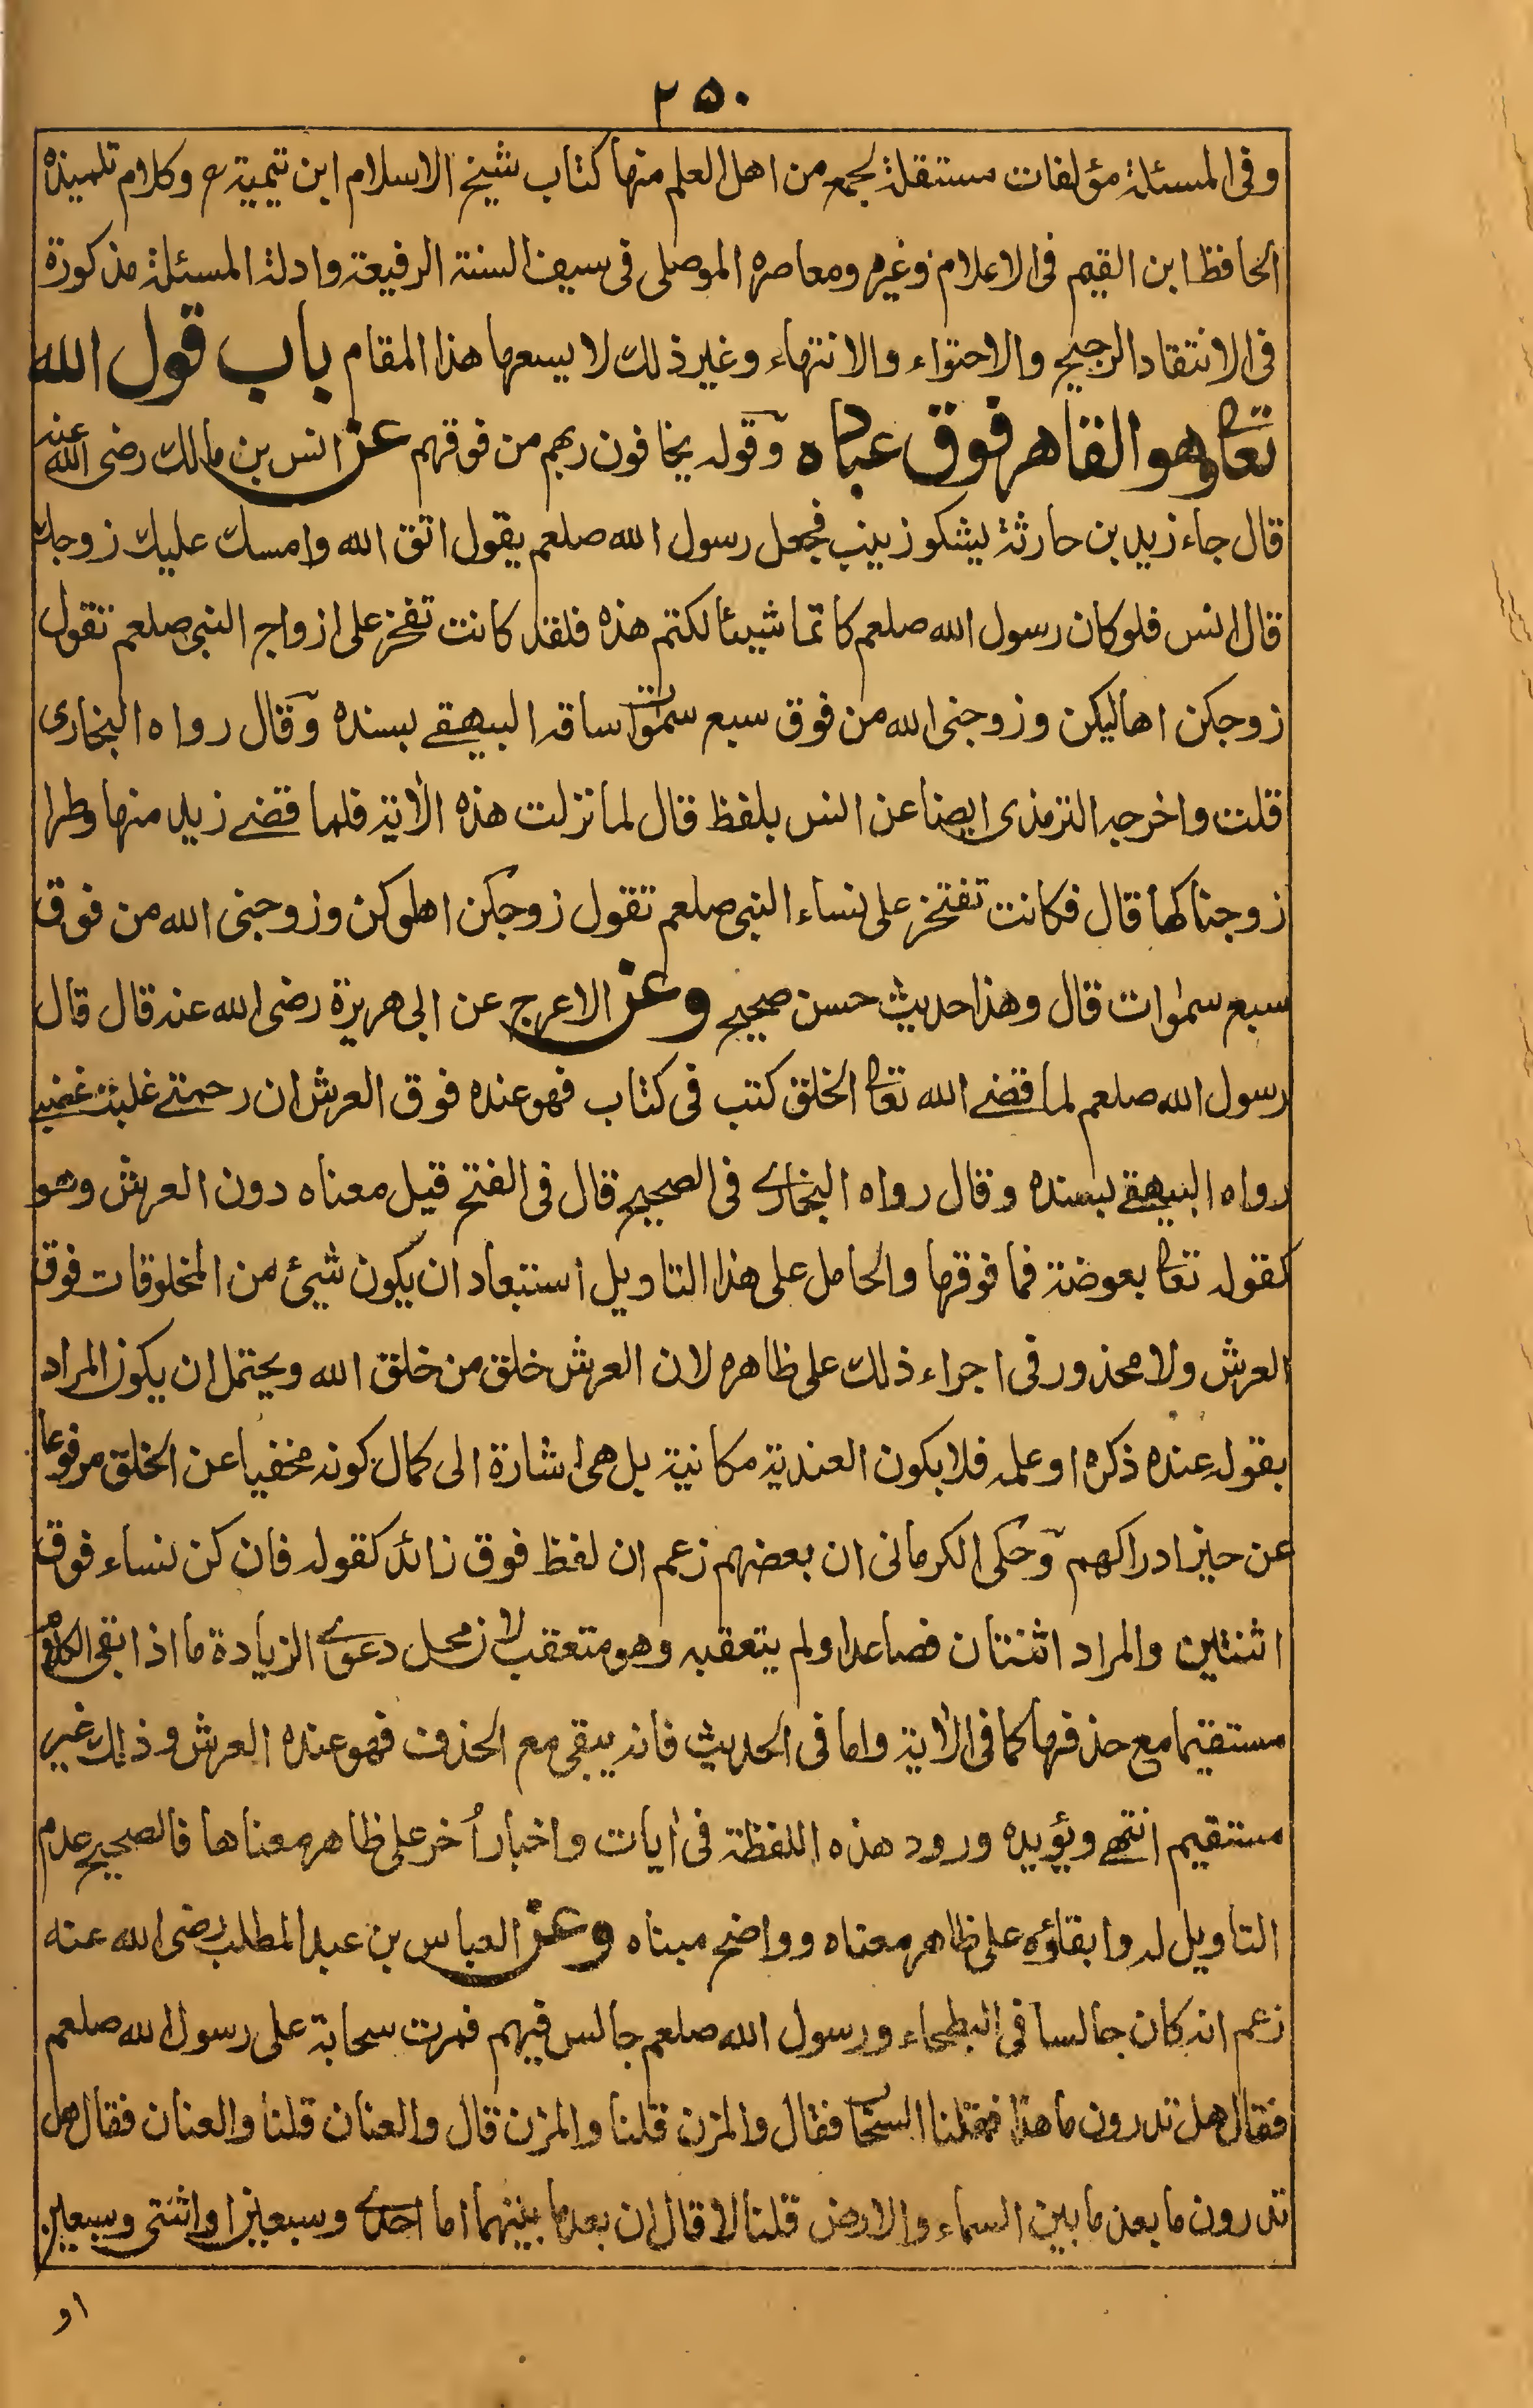 ۲۵۰
وفى المسئلة مؤلفات مستقلة لجمع من اهل العلم منها كتاب شيخ الاسلام ابن تيمية رح وكلام تلميذه
الحافظ ابن القيم فى الاعلام وغيره ومعاصره الموصلى فى سيف السنة الرفيعة وادلة المسئلة مذكورة
فى الانتقاد الرجيح والاحتواء والانتهاء وغير ذلك لا يسعها هذا المقام باب قول الله
تعالى وهو القاهر فوق عباده وقوله يخافون ربهم من فوقهم عن انس بن مالك رضى الله عنه
قال جاء زيد بن حارثة يشكو زينب فجعل رسول الله صلعم يقول اتق الله وامسك عليك زوجك
قال انس فلو كان رسول الله صلعم كاتما شيئا لكتم هذه فلقد كانت تفخر على ازواج النبى صلعم تقول
زوجكن اهاليكن وزوجنى الله من فوق سبع سموات ساقه البيهقے بسنده وقال رواه البخارى
قلت واخرجه الترمذى ايضا عن انس بلفظ قال لما نزلت هذه الاٰية فلما قضے زيد منها وطرا
زوجناكها قال فكانت تفتخر على نساء النبى صلعم تقول زوجكن اهلوكن وزوجنى الله من فوق
سبع سمٰوات قال وهذا حديث حسن صحيح وعن الاعرج عن ابى هريرة رضى الله عنه قال قال
رسول الله صلعم لما قضے الله تعالى الخلق كتب فى كتاب فهو عنده فوق العرش ان رحمتے غلبت غضبے
رواه البيهقے بسنده وقال رواه البخارے فى الصحيح قال فى الفتح قيل معناه دون العرش وهو
كقوله تعالى بعوضة فما فوقها والحامل على هذا التاويل استبعاد ان يكون شيئ من المخلوقات فوق
العرش ولا محذور فى اجراء ذلك على ظاهره لان العرش خلق من خلق الله ويحتمل ان يكون المراد
بقوله عنده ذكره او علمه فلا يكون العندية مكانية بل هى اشارة الى كمال كونه مخفيا عن الخلق مرفوعا
عن حيز ادراكهم وحكى الكرمانى ان بعضهم زعم ان لفظ فوق زائد كقوله فان كن نساء فوق
اثنتين والمراد اثنتان فصاعدا ولم يتعقبه وهو متعقب لان محل دعوے الزيادة ما اذا بقى الكلام
مستقيما مع حذفها كما فى الاٰية واما فى الحديث فانه يبقى مع الحذف فهو عنده العرش وذلك غير
مستقيم انتهے ويؤيده ورود هذه اللفظة فى اٰيات واخبار اُخر على ظاهر معناها فالصحيح عدم
التاويل له وابقاؤه على ظاهر معناه وواضح مبناه وعن العباس بن عبد المطلب رضى الله عنه
زعم انه كان جالسا فى البطحاء ورسول الله صلعم جالس فيهم فمرت سحابة على رسول الله صلعم
فقال هل تدرون ما هذا فقلنا السحاب فقال والمزن قلنا والمزن قال والعنان قلنا والعنان فقال هل
تدرون ما بعد ما بين السماء والارض قلنا لا قال ان بعد ما بينهما اما احدے وسبعين او اثنتى وسبعين
او